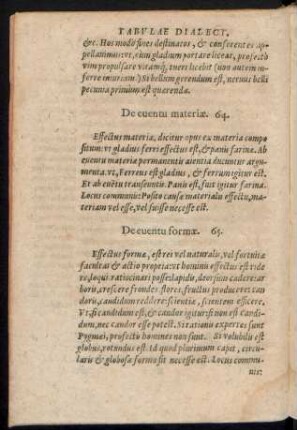 TABVLAE DIALECT.
&c. Hos modò fines destinates, & conferentes ap-
pellauimus: vt, cum gladium portare liceat, profectò
vim propulsare vitamq́; tueri licebit (suno autem in-
ferre iniuriam.) Si bellum gerendum est, neruus belli
pecunia primùm est quaerenda.
De euentu materiae. 64.
Effectus materiae, dicitur opus ex materia compo-
situm: vt gladius ferri effectus est, & panis farinae. Ab
euentu materiae permanentis aientia ducuntur argu-
menta. vt, Ferreus est gladius, & ferrum igitur est.
Et ab euentu transeuntis. Panis est, fuit igitur farina.
Locus communis: Posito causae materialis effectu, ma-
teriam vel esse, vel fuisse necesse est.
De euentu formae. 65.
Effectus formae, est res vel naturalis, vel fortuitae
facultas & actio propria: vt hominis effectus est ride
re, loqui: ratiocinari posse: lapidis, deorsum cadere: ar-
boris, crescere frondes flores, fructus producere: can
doris, candidum reddere: scientiae, scientem efficere.
Vt, si candidum est, & candor igitur: si non est candi-
dum, nec candor esse potest. Si rationis expertes sunt
Pygmaei, profectò homines non sunt. Si volubilis est
globus, rotundus est. Id quod plurimum capit, circu-
laris & globosae formae sit necesse est. Locus commu-
nis: